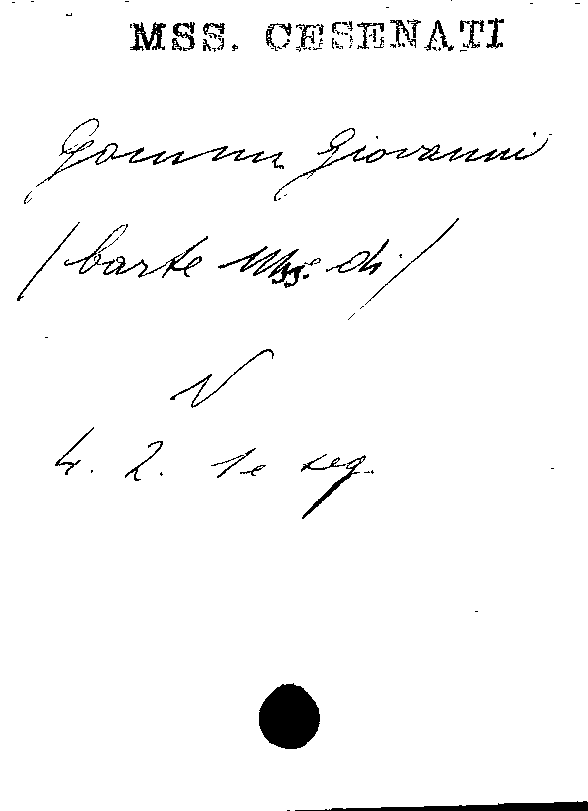 MSS. CESENATI
Giovanni
/Carte Mss. di/
V
4. 2. 1 e seg.